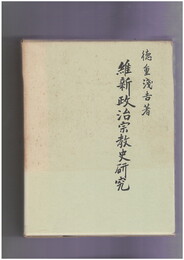 徳重浅吉著
維新政治宗教史研究